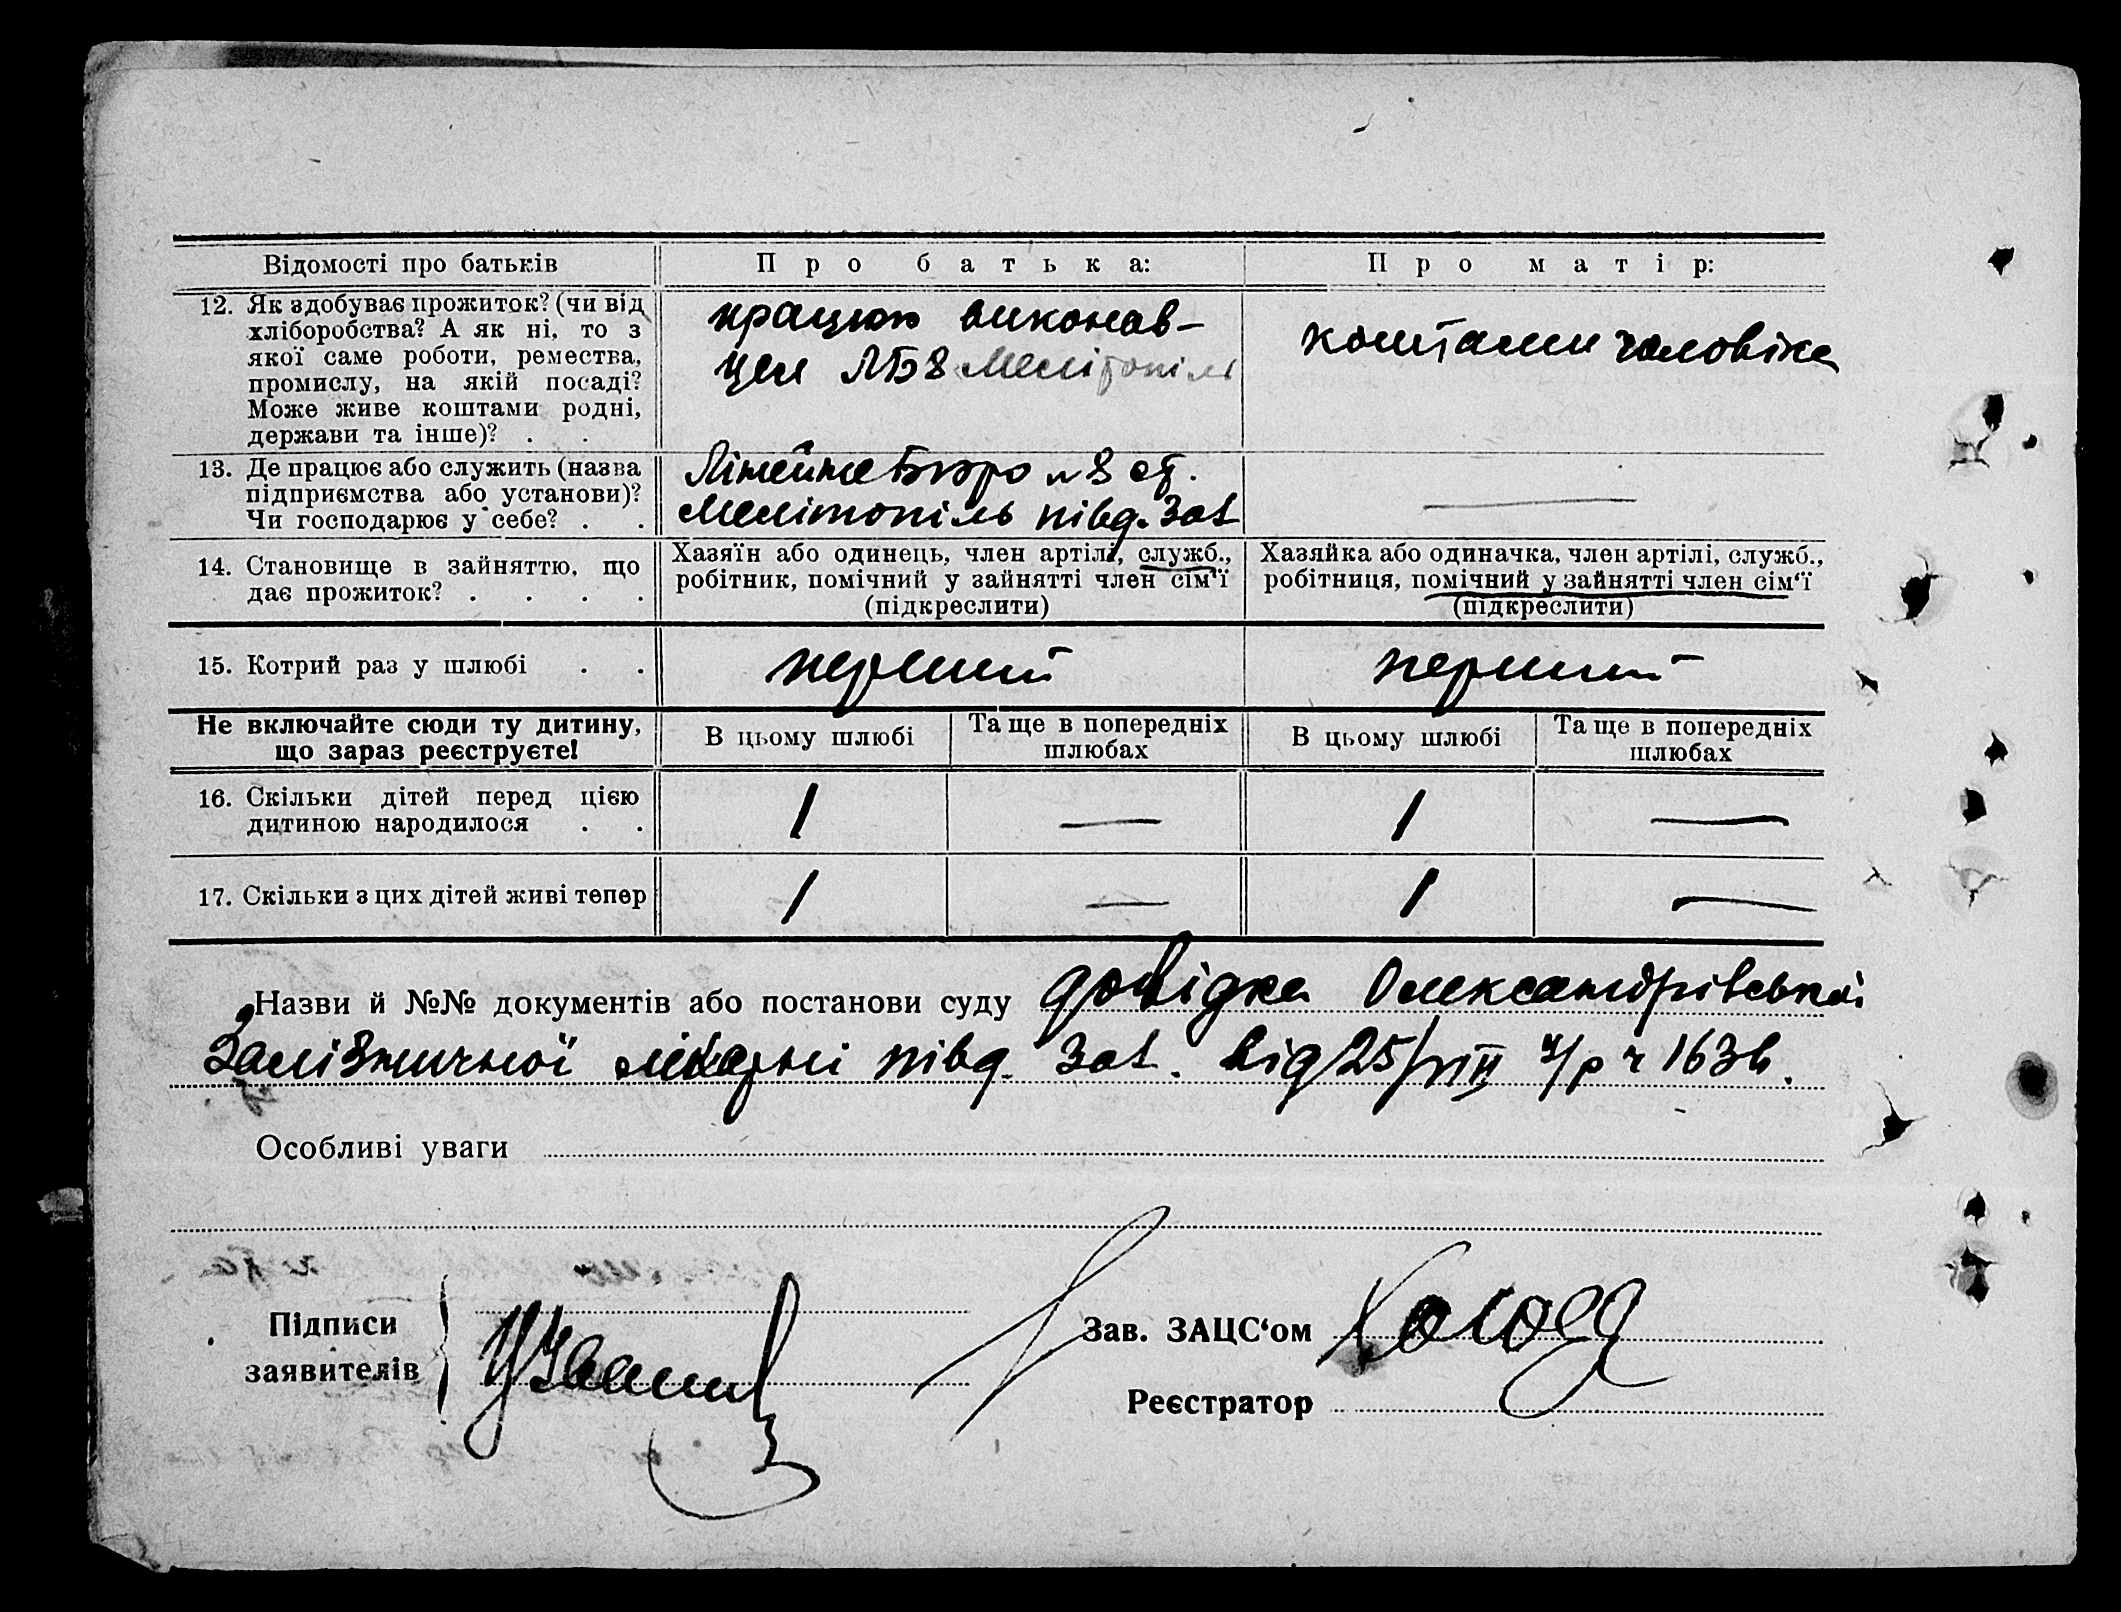 Відомості про батьків
Про батька:
Про матір:
12. Як здобуває прожиток? (чи від
хліборобства? А як ні, то з
якої саме роботи, ремества,
промислу, на якій посаді?
Може живе коштами родні,
держави та інше)? . .
працюю виконав-
цем ЛБ8 Мелітопіль
коштами чоловіка
13. Де працює або служить (назва
підприємства або установи)?
Чи господарює у себе? . .
Лінейне Бюро №8 ст.
Мелітопіль півд. Зал
14. Становище в зайняттю, що
дає прожиток? . . . .
Хазяїн або одинець, член артілі, служб.,
робітник, помічний у зайнятті член сім'ї
(підкреслити)
Хазяйка або одиначка, член артілі, служб.,
робітниця, помічний у зайнятті член сім'ї
(підкреслити)
15. Котрий раз у шлюбі . .
перший
перший
Не включайте сюди ту дитину,
що зараз реєструєте!
В цьому шлюбі
Та ще в попередніх
шлюбах
В цьому шлюбі
Та ще в попередніх
шлюбах
16. Скільки дітей перед цією
дитиною народилося . .
1
—
1
—
17. Скільки з цих дітей живі тепер
1
—
1
—
Назви й №№ документів або постанови суду довідка Олександрівської
Залізничної лікарні півд. Зал. від 25/VIII ц/р ч 163в.
Особливі уваги
Підписи
заявителів
Зав. ЗАЦС'ом Холод
Реєстратор